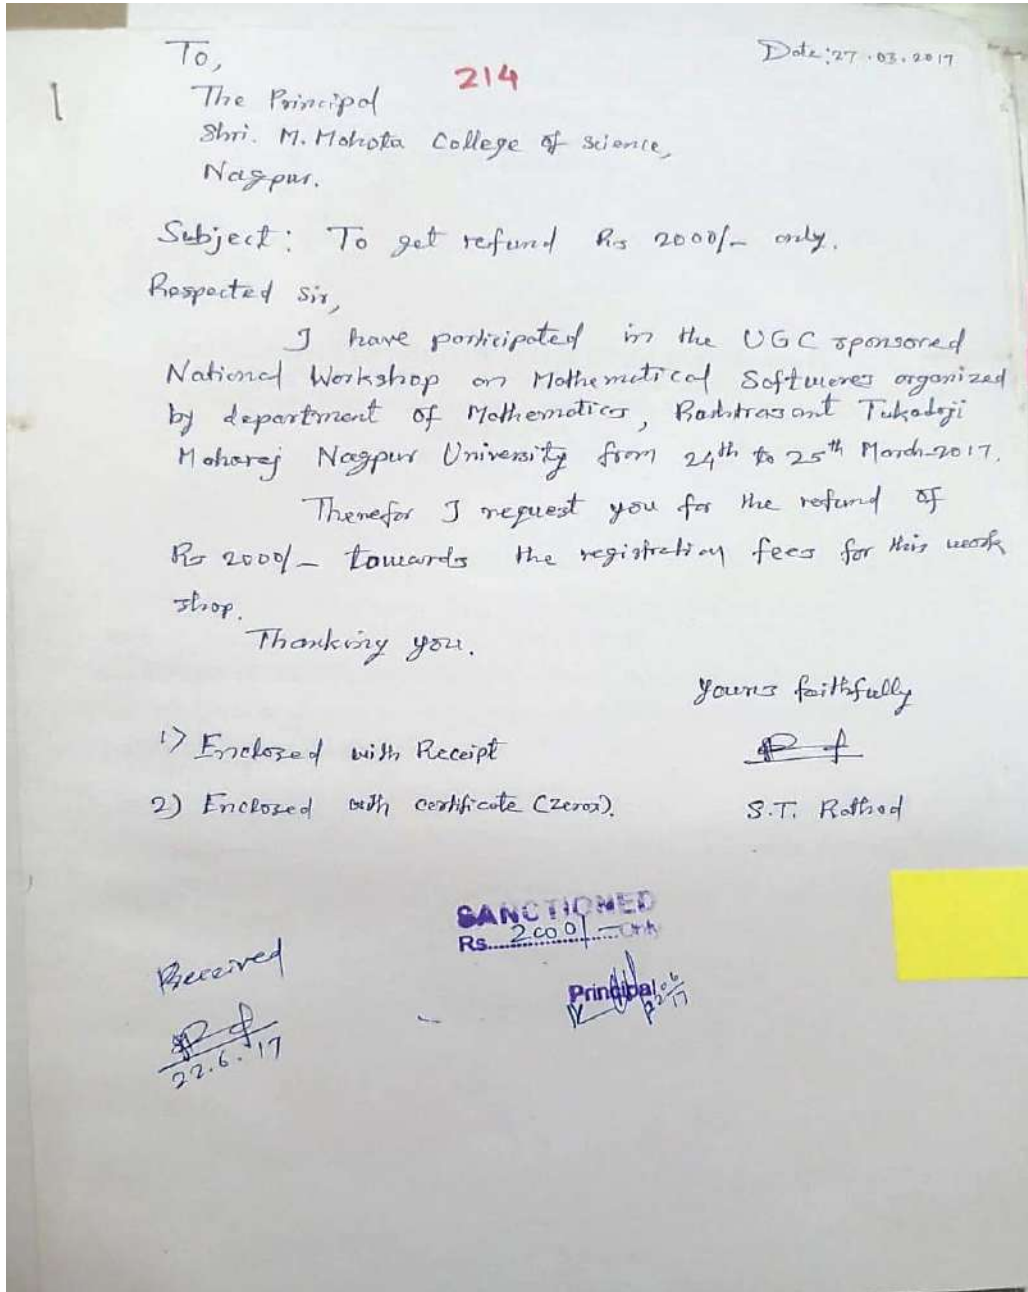 To,
Date: 27.03.2017
214
The Principal
Shri. M. Mohota College of Science,
Nagpur.
Subject: To get refund Rs 2000/- only.
Respected Sir,
I have participated in the UGC sponsored
National Workshop on Mathematical Softwares organized
by department of Mathematics, Rashtrasant Tukadoji
Maharaj Nagpur University from 24th to 25th March-2017.
Therefor I request you for the refund of
Rs 2000/- towards the registration fees for this work
shop.
Thanking you.
Yours faithfully
1) Enclosed with Receipt
2) Enclosed with certificate (Zerox).
S.T. Rathod
SANCTIONED
Rs. 2000/- Only
Received
Principal
22.6.17